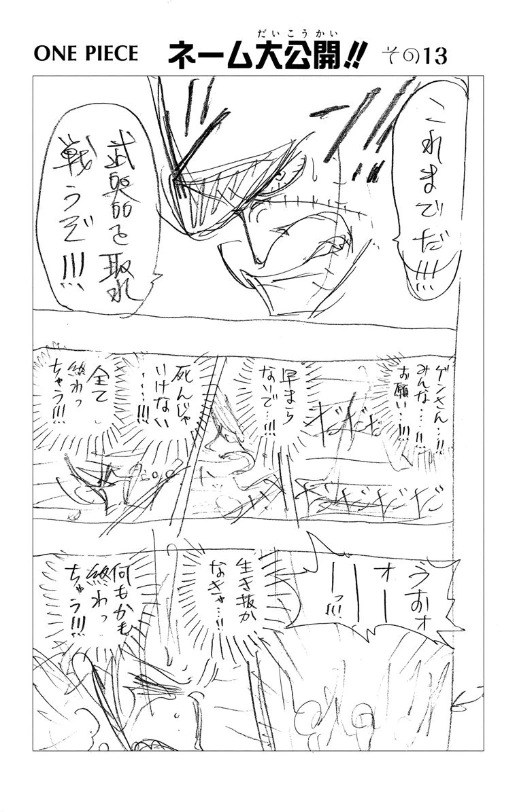 ONE PIECE ネーム大公開!! その13
だいこうかい
これまでだ!!!
武器を取れ
戦うぞ!!!
ゲンさん…!!
みんな…!!
お願い…!!!
ダダダ
早まら
ないで…!!!
死んじゃ
いけない
…!!!
全て
終わっ
ちゃう!!!
ダダダダダ
うおォ
オーー
ーーっ!!!
生き抜か
なきゃ…!!
何もかも
終わっ
ちゃう!!!